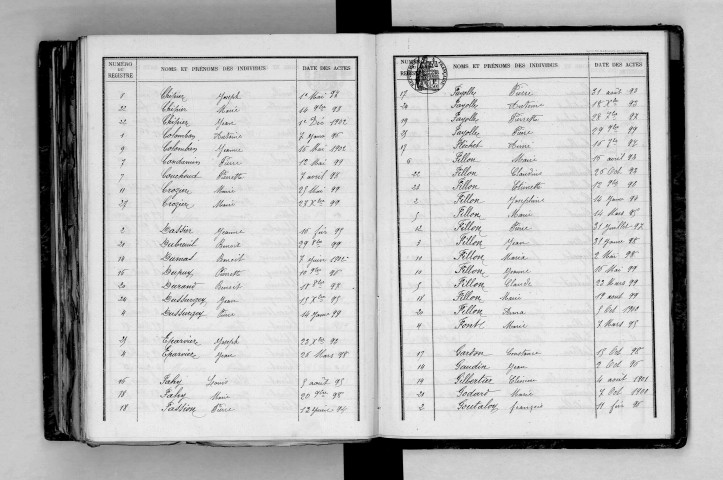 NUMÉRO DU REGISTRE NOMS ET PRÉNOMS DES INDIVIDUS DATE DES ACTES
8 Chipier Joseph 1er Mai 98
22 Chipier Marie
22 Chipier Jean 1er Déc 1902
1 Colombin Antoine 7 Janv 95
9 Colombin Jeanne 15 Mai 1902
7 Condamin Pierre 12 Mai 99
7 Couchoud Pierrette 7 avril 98
11 Crozier Marie 25 Mai 99
27 Crozier Marie 28 Xbre 99
2 Dassier Jeanne 16 fév 95
20 Dubreuil Benoit 29 8bre 99
14 Dumas Benoit 7 Juin 1902
16 Dupuy Pierrette
20 Durand Benoit 18 8bre 98
24 Dussurgey Jean 15 Xbre 95
4 Dussurgey 14 Janv 99
27 Eparvier Joseph 22 Xbre 92
4 Eparvier Jean 26 Mars 98
16 Fahy Louis 5 août 95
18 Fahy Marie 20 9bre 98
18 Passion Pierre
NUMÉRO DU REGISTRE NOMS ET PRÉNOMS DES INDIVIDUS DATE DES ACTES
17 Fayolle Pierre 21 août 93
24 Fayolle Antoine 18 Xbre 93
19 Fayolle Pierrette 28 7bre 97
25 Fayolle 29 9bre 99
17 Fléchet Henri
6 Fillon Marie 15 avril 93
22 Fillon Claudine 25 Oct 93
23 Fillon
2 Fillon Joséphine 14 Janv 94
5 Fillon Marie 14 Mars 95
12 Fillon Pierre 21 Juillet 97
3 Fillon Jean 31 Janv 98
11 Fillon Maria 2 Mai 98
10 Fillon Jeanne 16 Mai 99
5 Fillon Claude 22 Mars 99
18 Fillon Marie 19 août 99
20 Fillon Anna 5 Oct 1900
4 Font Marie 7 Mars 95
17 Gardon Constance 13 Oct 98
14 Gaudin Jean 2 Oct 95
19 Gilbertier Etienne 4 août 1901
20 Godard Marie 7 Oct 1900
2 Goutaloy françois 11 fév 95